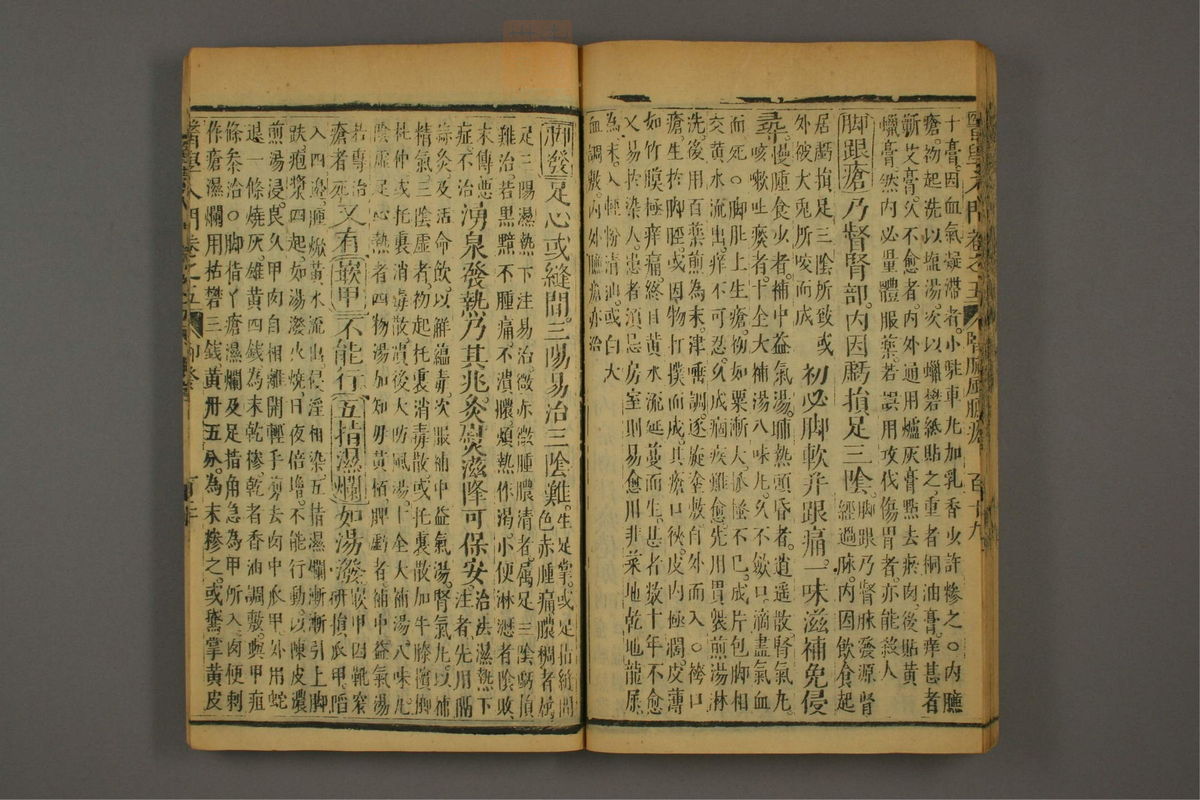 醫學入門 卷之五 百十九
十膏因血氣凝滯者小駐車丸加乳香少許摻之○內臁
瘡初起洗以塩湯次以蠟礬紙貼之重者桐油膏痒甚者
蘄艾膏久不愈者內外通用爐灰膏點去瘀肉後貼黃
蠟膏然內必量體服藥若誤用攻伐傷胃者亦能殺人
脚跟瘡乃督腎部內因虧損足三陰脚跟乃腎脉發源腎
經過脉內因飲食起
居虧損足三陰所致或
外被犬兎所咬而成初必脚軟并跟痛一味滋補免侵
尋慢腫食少者補中益氣湯晡熱頭昏者逍遥散腎氣丸
咳嗽吐痰者十全大補湯八味丸久不斂口滴盡氣血
而死○脚肚上生瘡初如粟漸大抓搔不已成片包脚相
交黃水流出痒不可忍久成痼疾難愈先用貫衆煎湯淋
洗後用百藥煎為末津唾調逐旋塗敷自外而入○口
瘡生於脚脛或因物打撲而成其瘡口狹皮內極濶皮薄
如竹膜極痒痛終日黃水流延蔓而生甚者數十年不愈
又易於染人患者須忌房室則易愈用韭菜地乾地龍屎
為末入輕粉清油或白犬
血調敷內外臁瘡亦治
脚發足心或縫間三陽易治三陰難生足掌或足指縫間
色赤腫痛膿稠者屬
足三陽濕熱下注易治微赤微腫膿清者屬足三陰虧損
難治若黑黯不腫痛不潰膿煩熱作渴小便淋瀝者陰敗
末傳惡
症不治湧泉發熱乃其兆灸熨滋降可保安治法濕熱下
注者先用隔
蒜灸及活命飲以解壅毒次服補中益氣湯腎氣丸以補
精氣三陰虛者初起托裏消毒散或托裏散加牛膝檳榔
杜仲或托裏消毒散潰後大防風湯十全大補湯八味丸
陰虛足心熱者四物湯加知母黃柏脾虧者補中益氣湯
若專治
瘡者死又有嵌甲不能行五指濕爛如湯潑嵌甲因靴窄
研損爪甲陷
入四邊腫焮黃水流出侵淫相染五指濕爛漸漸引上脚
趺疱漿四起如湯潑火燒日夜倍增不能行動以陳皮濃
煎湯浸良久甲肉自相離開輕手剪去肉中爪甲外用蛇
退一條燒灰雄黃四錢為末乾摻乾者香油調敷與甲疽
條參治○脚指丫瘡濕爛及足指角急為甲所入肉便刺
作瘡濕爛用枯礬三錢黃丹五分為末摻之或鵞掌黃皮
醫學入門卷之五 脚發 百二十